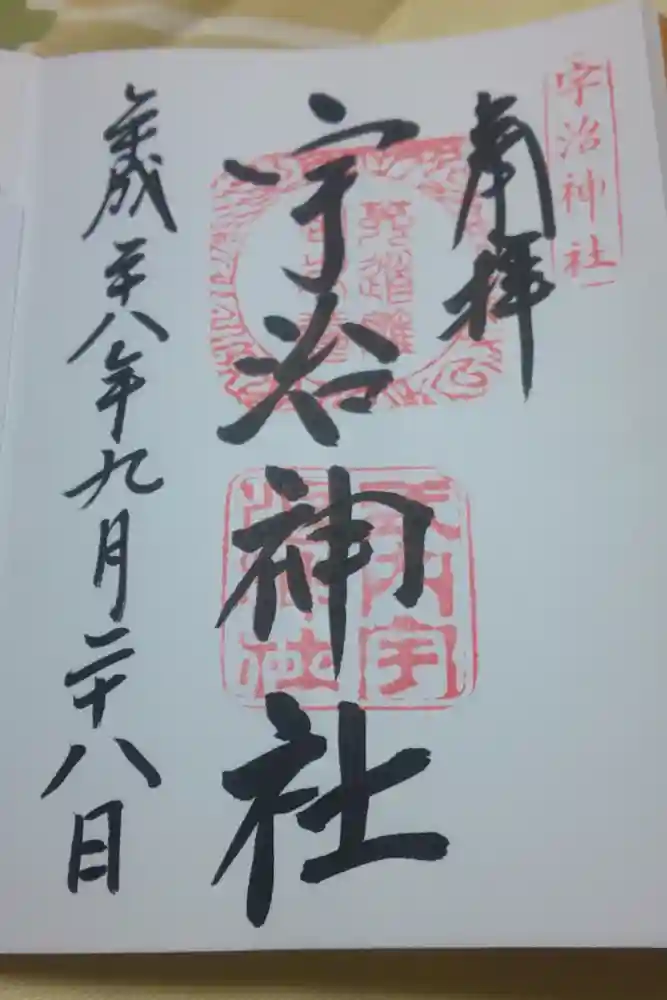 宇治神社
奉拝
宇治神社
式内宇治神社
平成二十八年九月二十八日